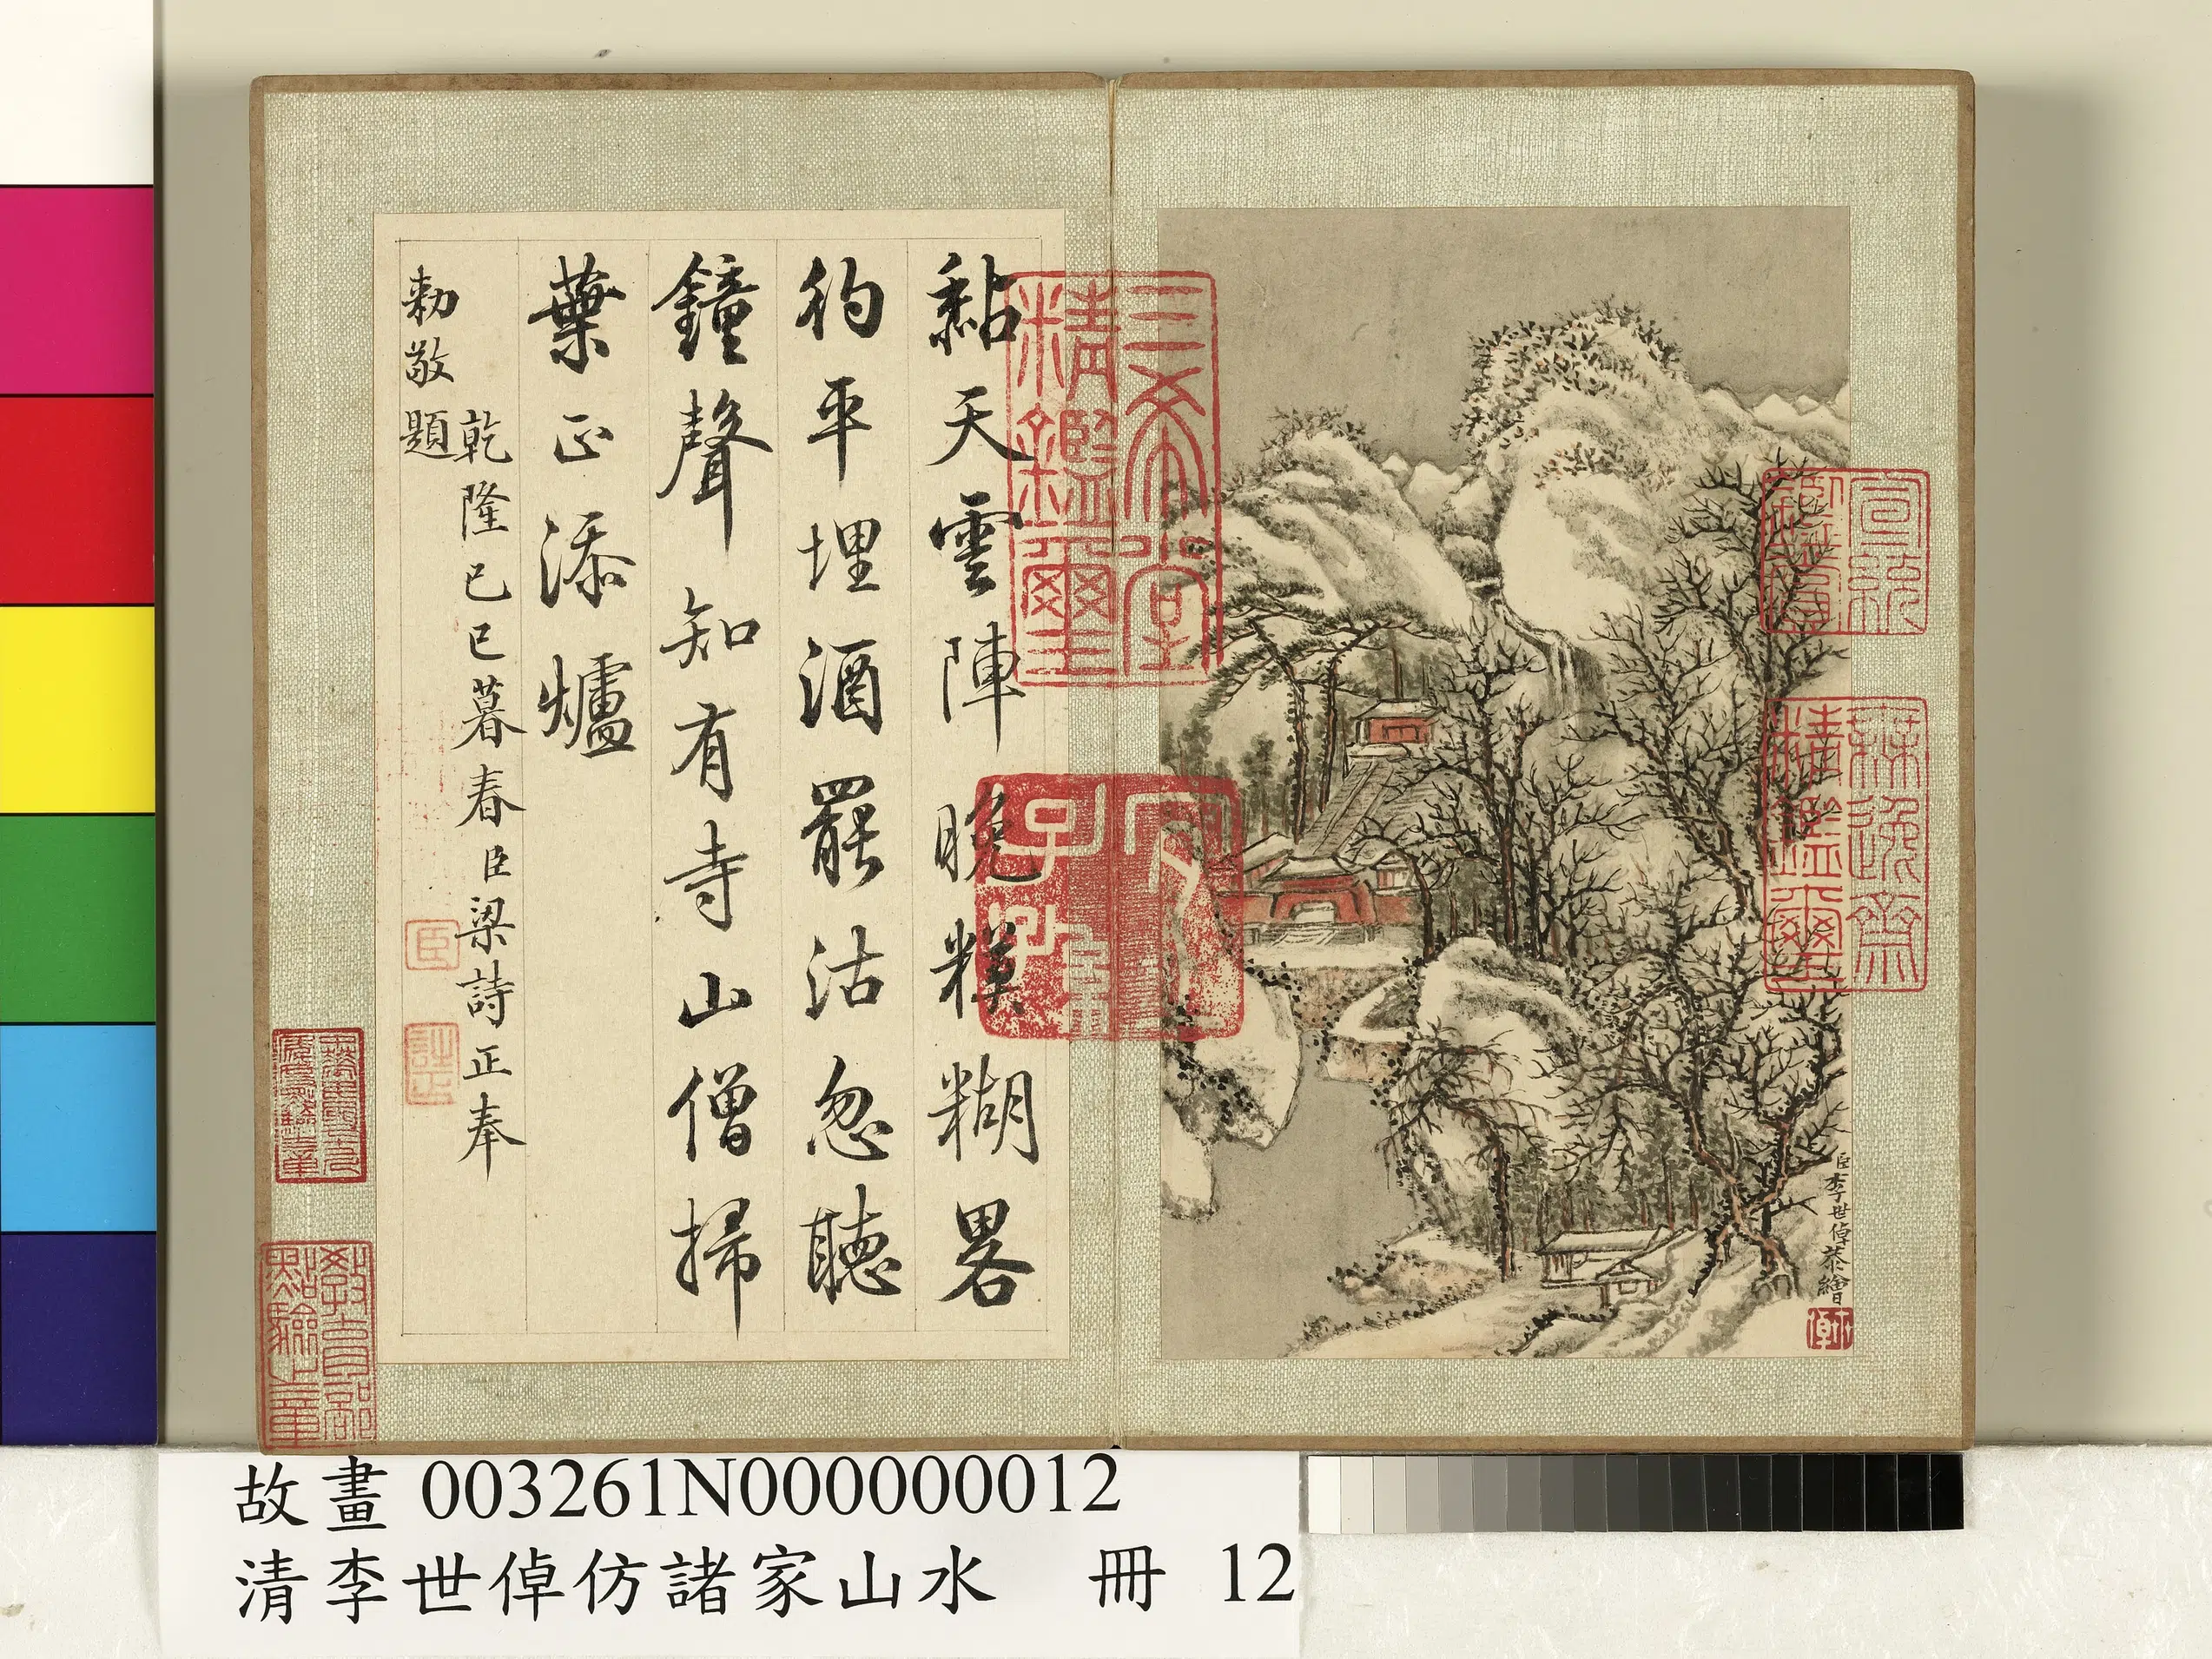 宣統鑑賞
無逸齋精鑑璽
臣李世倬恭繪
三希堂精鑑璽
宜子孫
黏天雲陣晚糢糊畧
彴平埋酒罷沽忽聽
鐘聲知有寺山僧掃
葉正添爐
乾隆己巳暮春臣梁詩正奉
勅敬題
臣
詩正
教育部點驗之章
故畫 003261N000000012
清李世倬仿諸家山水 冊 12